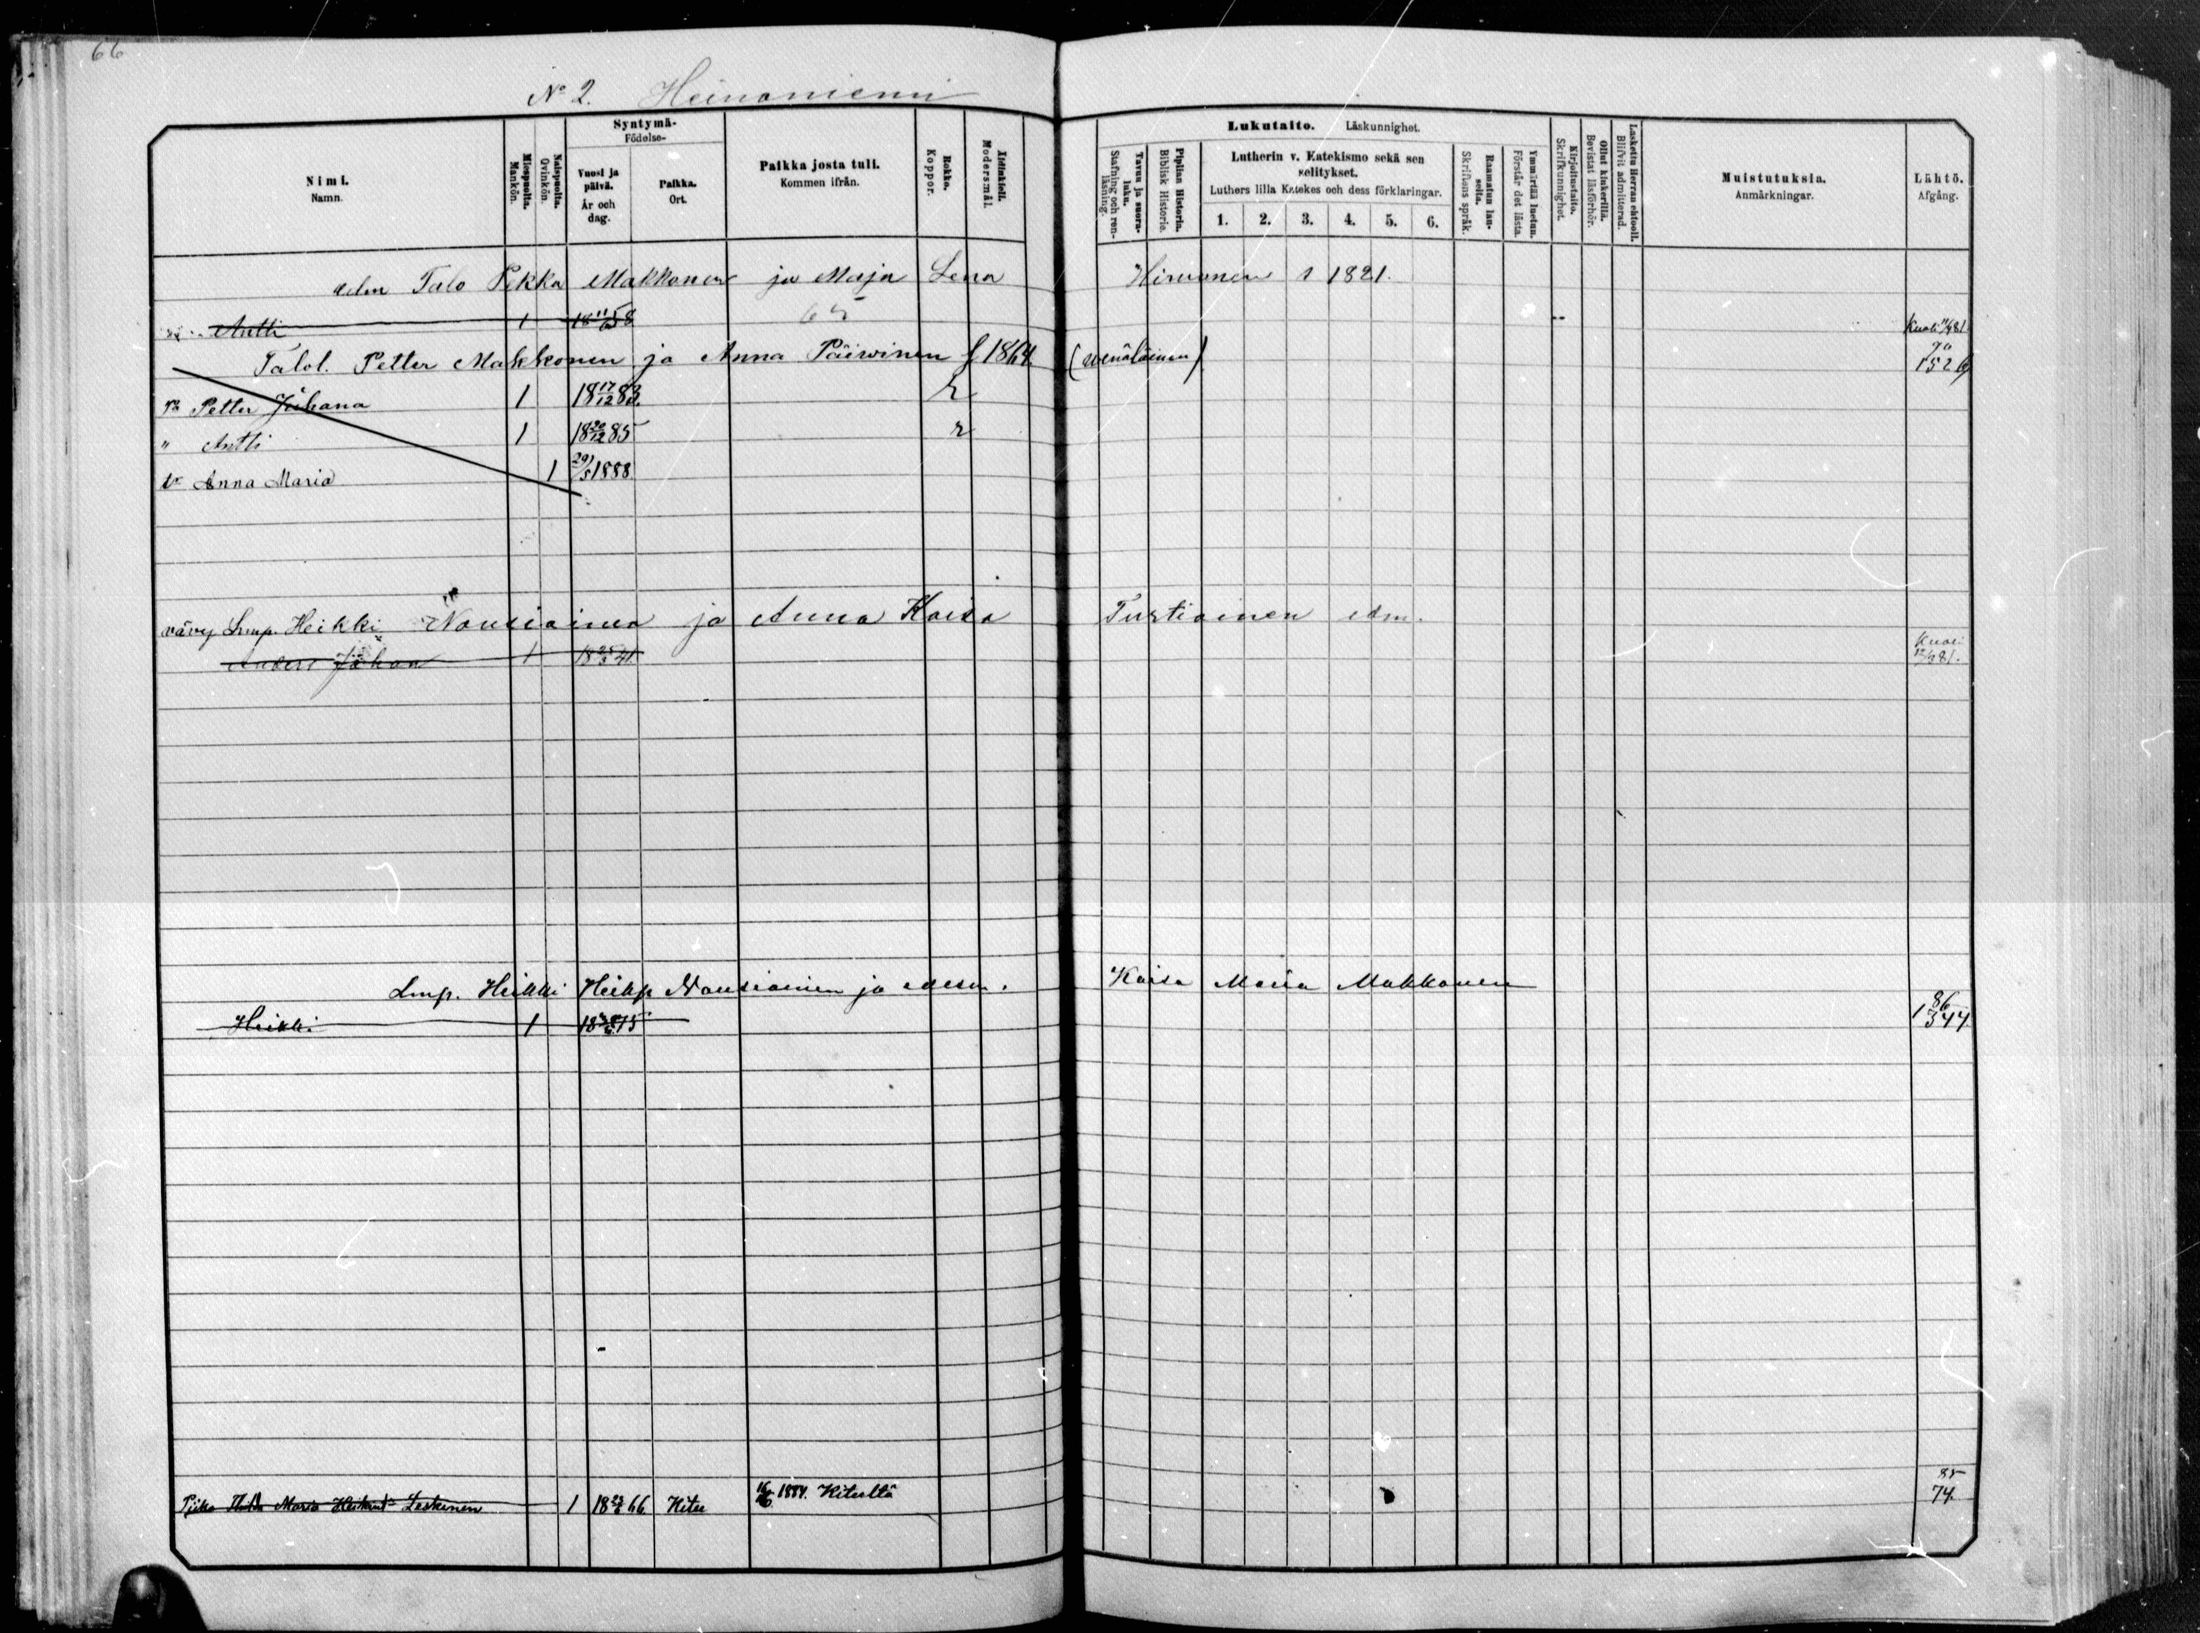 66
No 2. Heinoniemi
Nimi.
Namn.
Miespuolta.
Mankön.
Naispuolta.
Qvinkön.
Syntymä-
Födelse-
Vuosi ja päivä.
År och dag.
Paikka.
Ort.
Paikka josta tuli.
Kommen ifrån.
Rokko.
Koppor.
Äidinkieli.
Modersmål.
Lukutaito. Läskunnighet.
Tavuu ja suora-luku.
Stafning och ren-läsning.
Piplian Historia.
Biblisk Historie.
Lutherin v. Katekismo sekä sen selitykset.
Luthers lilla Katekes och dess förklaringar.
1. 2. 3. 4. 5. 6.
Raamatun lau-seita.
Skriftens språk.
Ymmärtää luetun.
Förstår det lästa.
Kirjoitustaito.
Skrifkunnighet.
Ollut kinkerillä.
Bevistat läsförhör.
Laskettu Herran ehtooll.
Blifvit admitterad.
Muistutuksia.
Anmärkningar.
Lähtö.
Afgång.
edm Talo Pekka Makkonen ja Maja Lena Hirvonen s 1821.
Antti 1 18 11/6 58 65 Kuoli 11/4 81
Talol. Petter Makkonen ja Anna Päiwinen f 1864. (wenäläinen) 90 1526
Petter Juhana 1 18 17/12 83. r
" Antti 1 18 20/12 85 r
tr Anna Maria 1 29/5 1888
vävy Lmp. Heikki Nousiainen ja Anna Kaisa Turtiainen edm.
Anders Johan 1 18 25/3 41 Kuoli 12/9 81.
Lmp. Heikki Heikp Nousiainen ja edesm. Kaisa Maria Makkonen
Heikki 1 18 75 86 1344
Piika Hilda Maria Heikint Leskinen 1 18 23/6 66 Kitee 16/10 1884. Kiteeltä 85 74